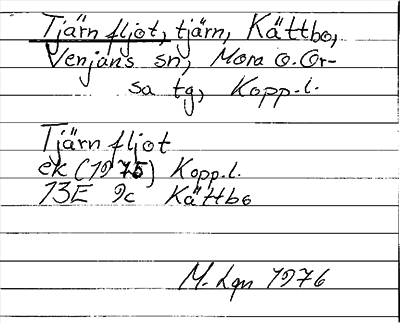 Tjärn fljot, tjärn, Kättbo,
Venjans sn, Mora o. Or-
sa tg, Kopp.l.
Tjärn fljot
ek (1975) Kopp.l.
13E 9c Kättbo
M. Lgn 1976